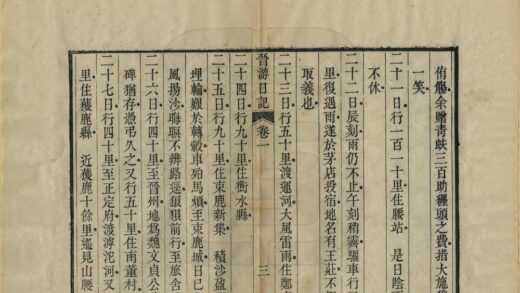 侑觴余贈青蚨三百助纏頭之費措大施
一笑
二十一日行一百一十里住腰站　是日陰
不休
二十二日辰刻雨仍不止午刻稍霽驅車行
里復遇雨遂於茅店投宿地名有王莊不
取義也
二十三日行五十里渡運河大風雷雨住鄭
晉游日記　卷一　三
二十四日行九十里住衡水縣
二十五日行九十里住東鹿新集　積沙盈
埋輪艱於轉轂車殆馬煩至束鹿城日已
風揚沙晦眯不辨路逕狼狽前行至旅舍
二十六日行四十里至晉州地爲魏文貞公
碑猶存憑弔久之又行五十里住南董村
二十七日行四十里至正定府渡滹沱河又
里住獲鹿縣　近獲鹿十餘里遙見山腰